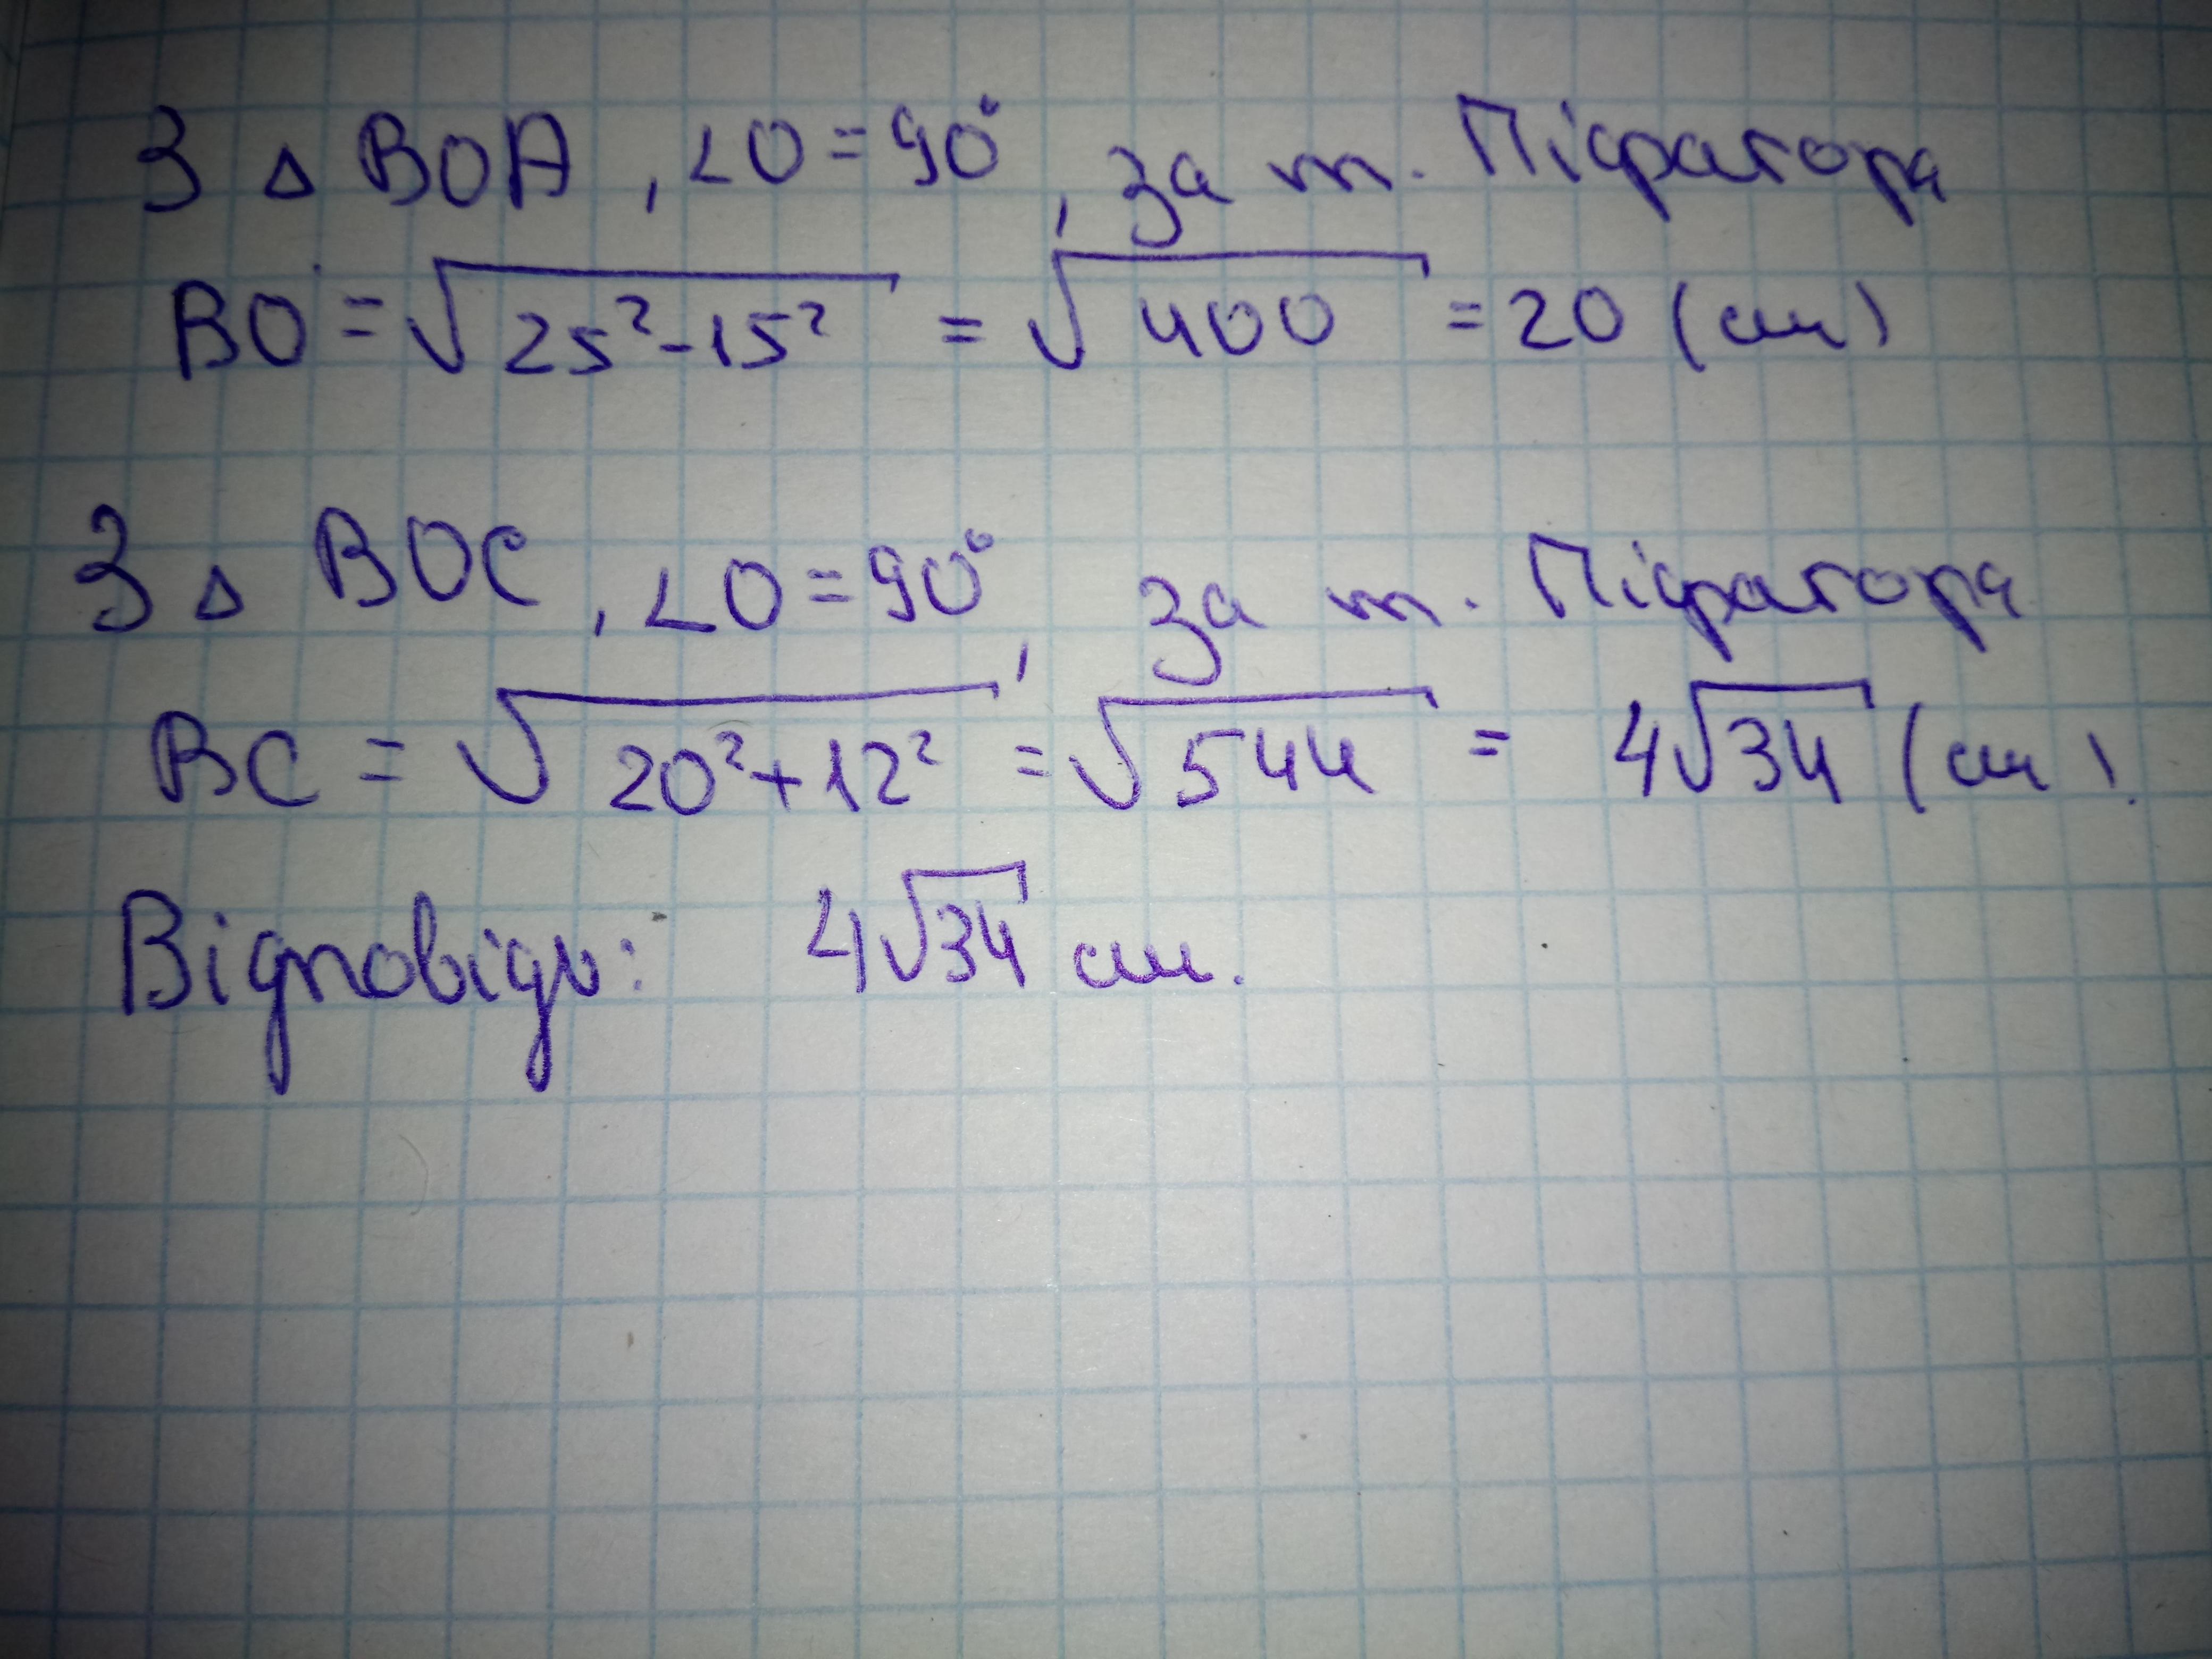 З △ BOA, ∠O = 90°, за т. Піфагора
BO = √(25² - 15²) = √400 = 20 (см)
З △ BOC, ∠O = 90°, за т. Піфагора
BC = √(20² + 12²) = √544 = 4√34 (см).
Відповідь: 4√34 см.